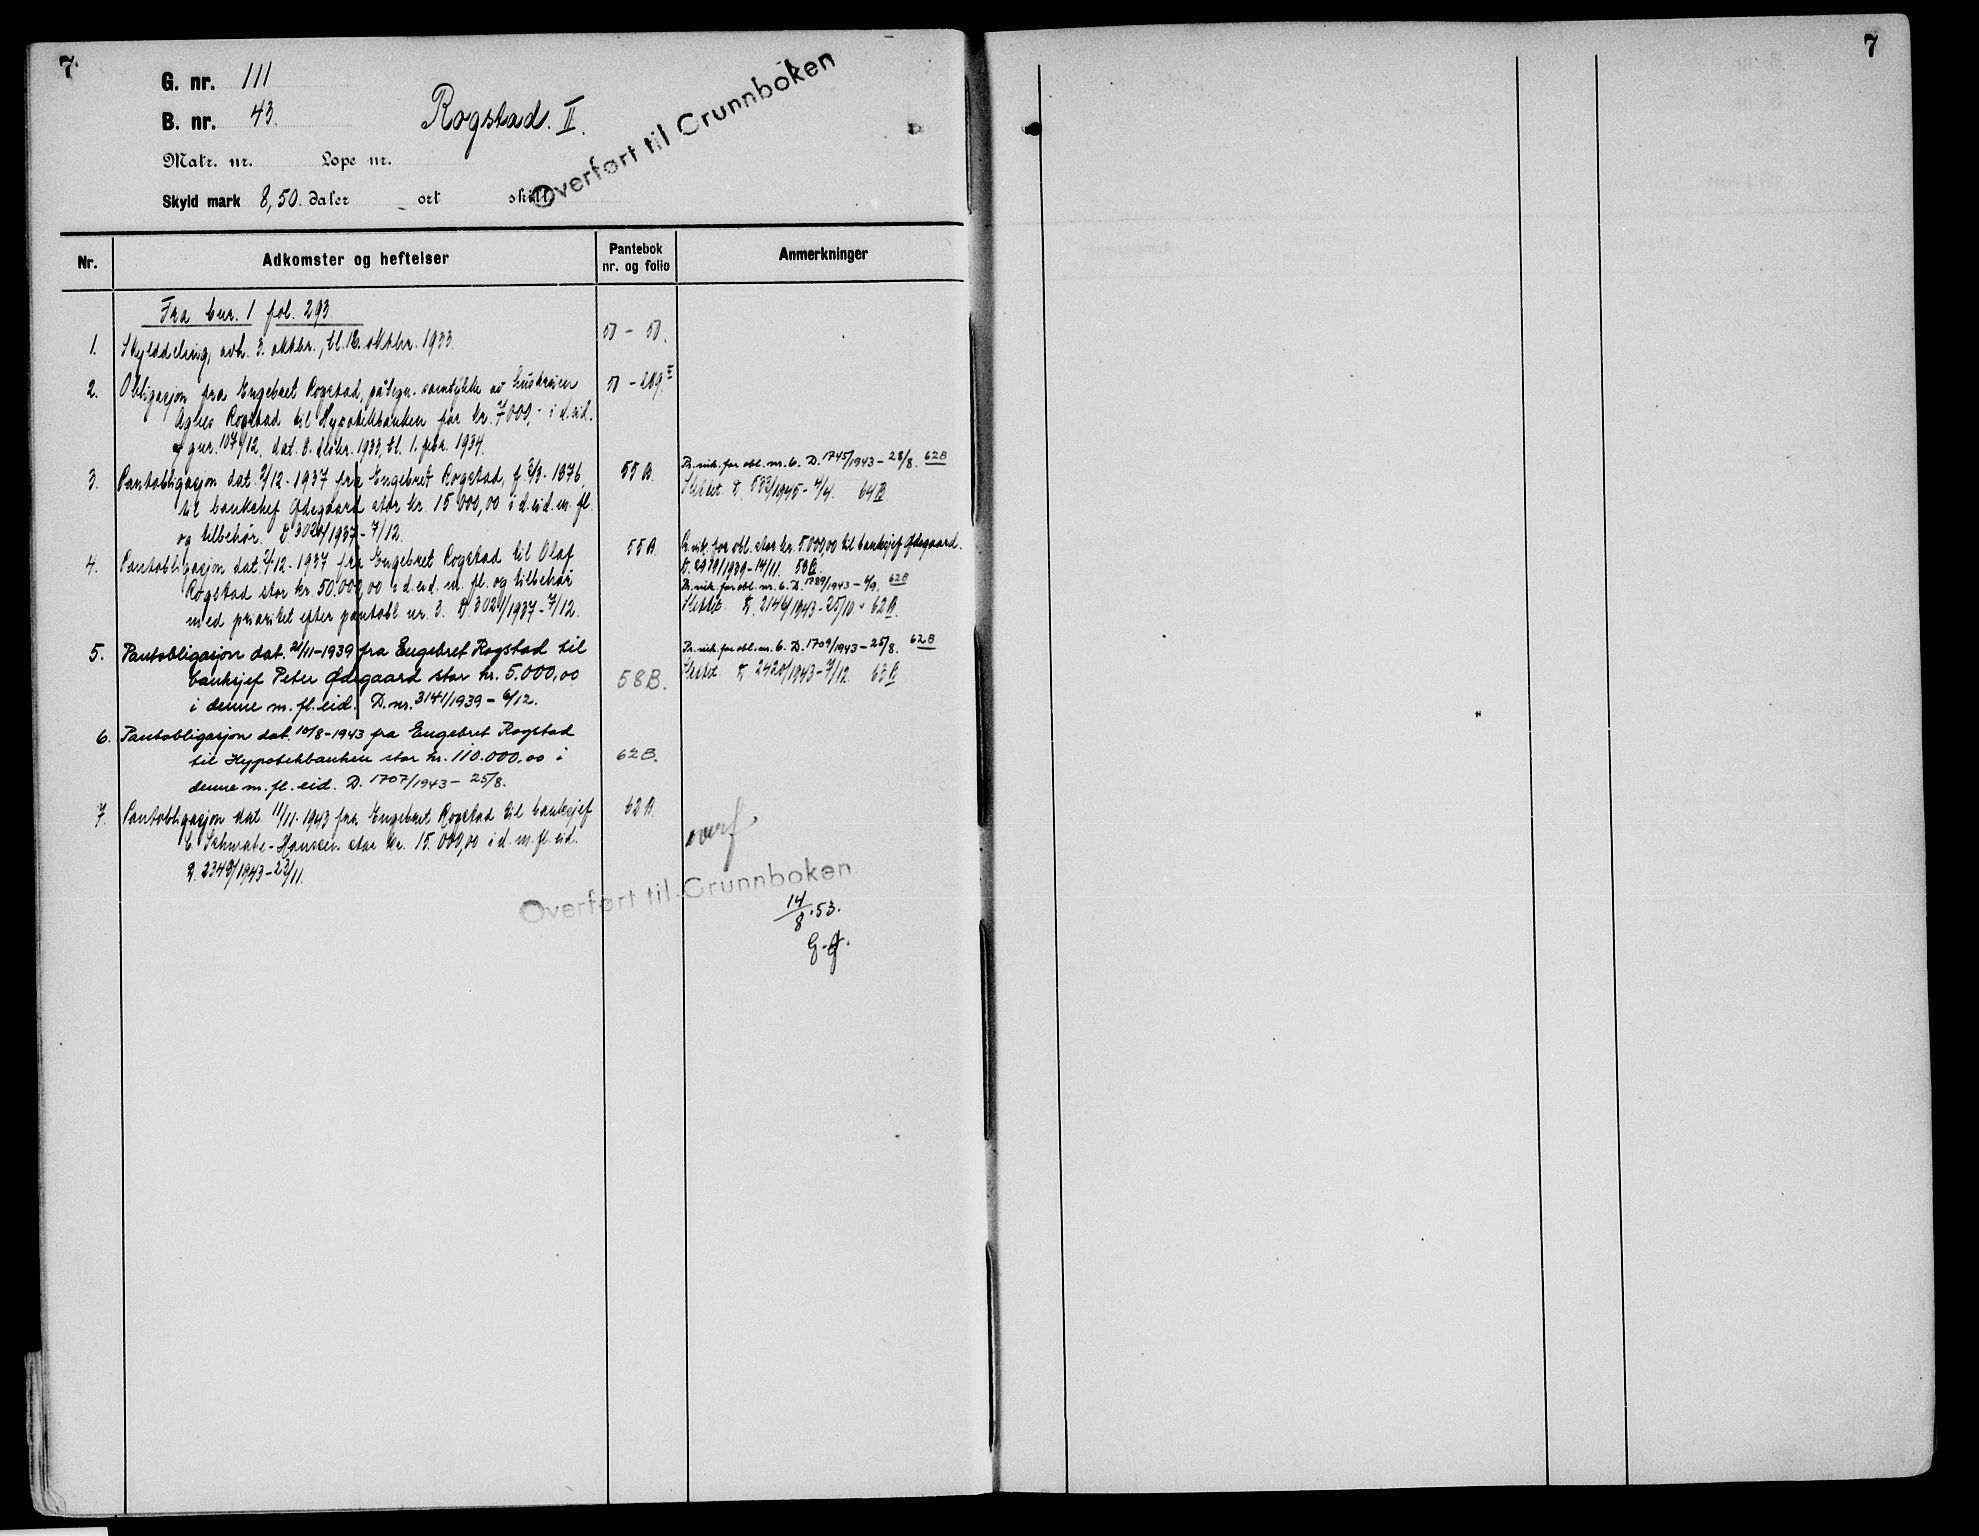 7.
G. nr. 111
B. nr. 43.
Rogstad. II.
Overført til Grunnboken
Matr. nr. Løpe nr.
Skyld mark 8,50. daler ort skill.
Nr. Adkomster og heftelser Pantebok nr. og folio Anmerkninger
Fra bur. 1 fol. 293.
1. Skylddeling, avh. 3. oktbr., tl. 16. oktbr. 1933.
2. Obligasjon fra Engebret Rogstad, påtegn. samtykke av hustruen
Agnes Rogstad til Hypotekbanken for kr. 7000,- i d. eid.
og gnr. 107/12, dat. 8. desbr. 1933, tl. 1. febr. 1934.
3. Pantobligasjon dat. 2/12-1937 fra Engebret Rogstad, f. 2/3-1876, 55 A. Pr. vik. for obl. nr. 6. D. 1745/1943-28/8. 62B
til banksjef Ødegaard stor kr. 15 000,00 i d. eid. m. fl. Slettet. D. 593/1945-4/4. 64 A.
og tilbehør. D. 3020/1937-7/12.
4. Pantobligasjon dat. 2/12-1937 fra Engebret Rogstad til Olaf 55 A. Pr. vik. for obl. stor kr. 5.000,00 til banksjef Ødegaard.
D. 2979/1939-14/11. 58B.
Rogstad stor kr. 50.000,00 i d. eid. m. fl. og tilbehør Pr. vik. for obl. nr. 6. D. 1789/1943-4/9. 62B
med prioritet efter pantobl nr. 3. D. 3021/1937-7/12. Slettet. D. 2146/1943-25/10. 62 A.
5. Pantobligasjon dat. 21/11-1939 fra Engebret Rogstad til Pr. vik. for obl. nr. 6. D. 1709/1943-25/8. 62B
banksjef Peter Ødegaard stor kr. 5.000,00 58B. Slettet D. 2420/1943-7/12. 63 A
i denne m. fl. eid. D. nr. 3141/1939-6/12.
6. Pantobligasjon dat. 10/8-1943 fra Engebret Rogstad
til Hypotekbanken stor kr. 110.000,00 i 62B.
denne m. fl. eid. D. 1707/1943-25/8.
7. Pantobligasjon dat. 11/11-1943 fra Engebret Rogstad til banksjef 62 A.
C. Schwabe-Hansen stor kr. 15.000,00 i d. m. fl. eid. overf.
D. 2349/1943-23/11.
Overført til Grunnboken
14/8.53.
7